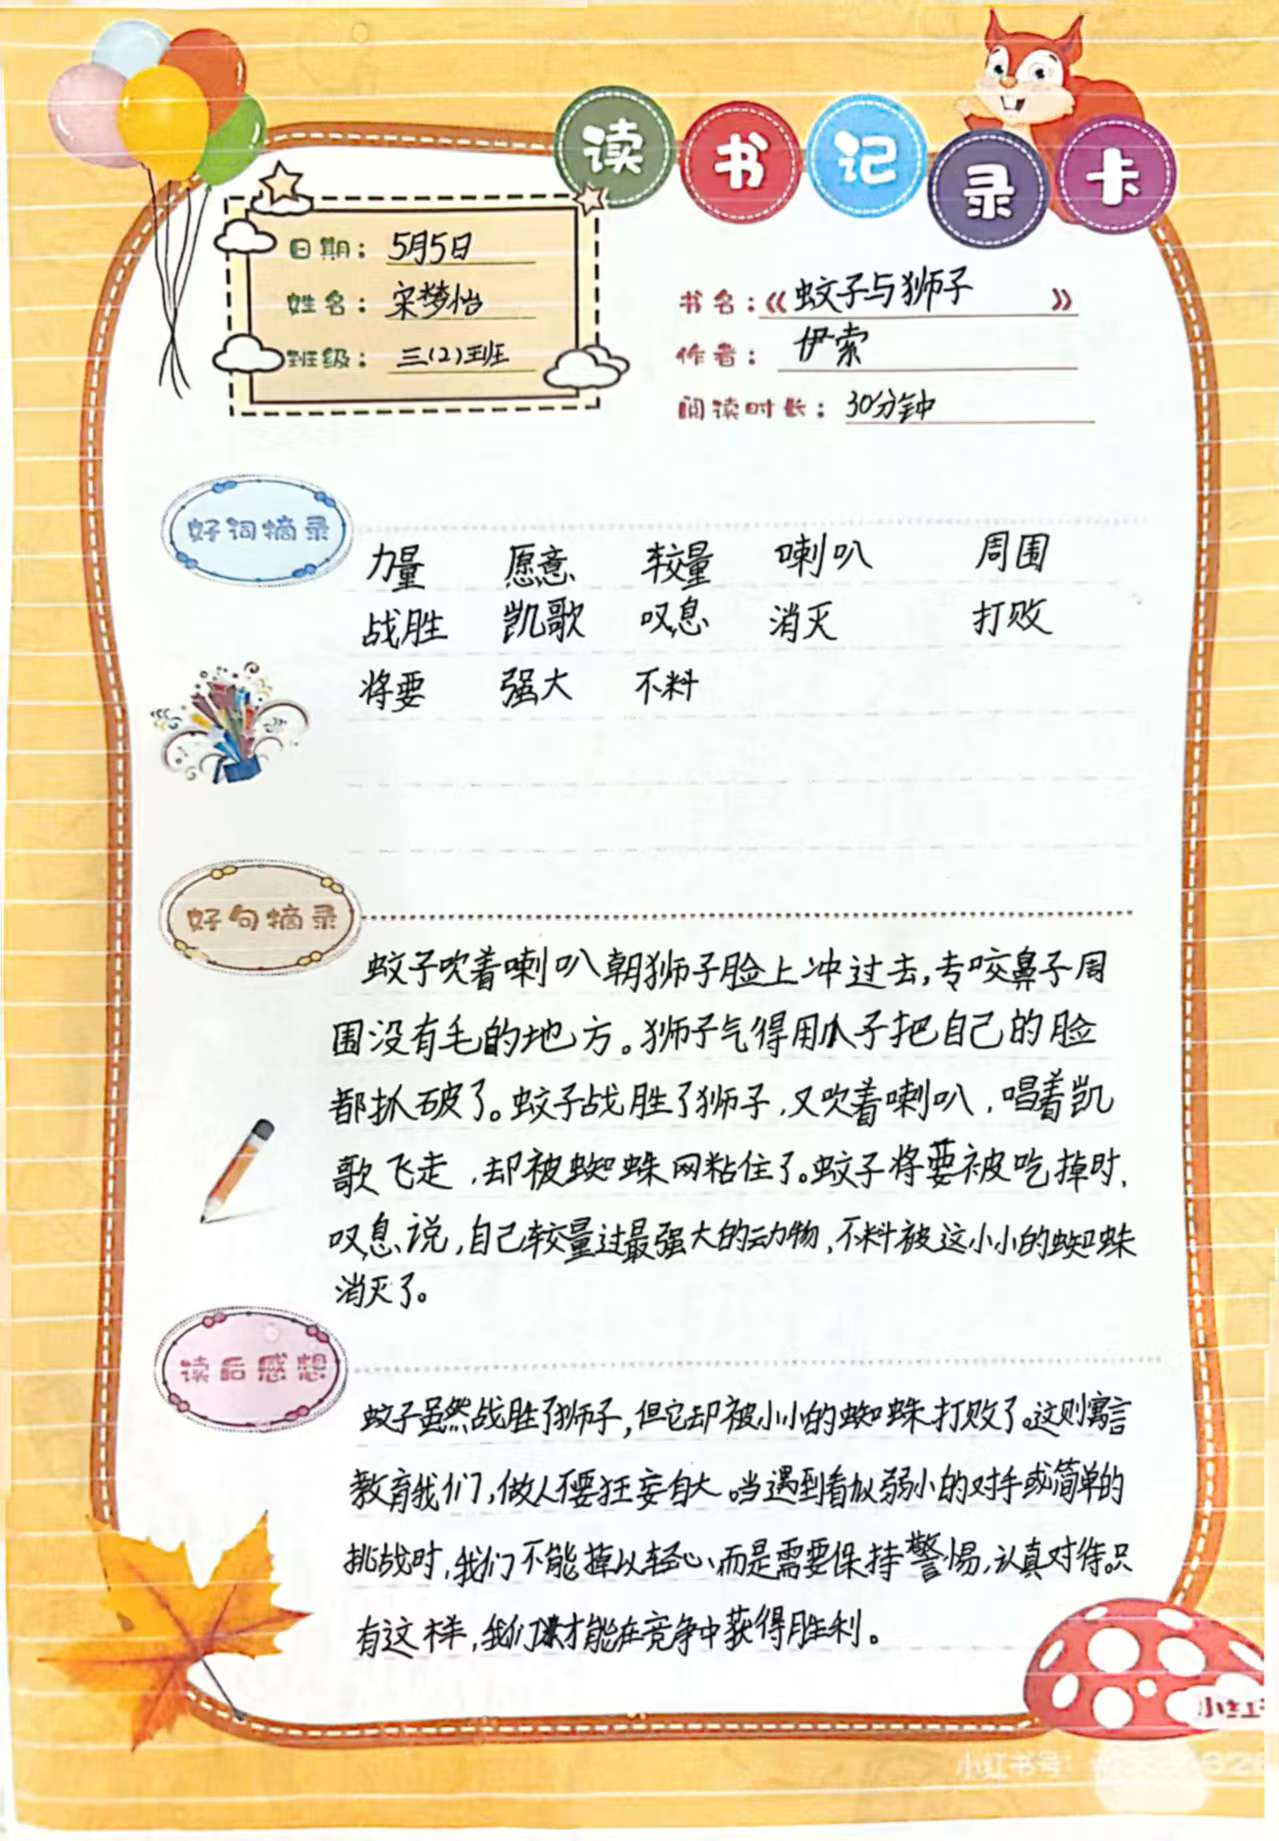 读书记录卡
日期：5月5日
姓名：宋梦怡
班级：三(2)班
书名：《蚊子与狮子》
作者：伊索
阅读时长：30分钟
好词摘录
力量 愿意 较量 喇叭 周围
战胜 凯歌 叹息 消灭 打败
将要 强大 不料
好句摘录
蚊子吹着喇叭朝狮子脸上冲过去,专咬鼻子周
围没有毛的地方。狮子气得用爪子把自己的脸
都抓破了。蚊子战胜了狮子,又吹着喇叭,唱着凯
歌飞走,却被蜘蛛网粘住了。蚊子将要被吃掉时,
叹息说,自己较量过最强大的动物,不料被这小小的蜘蛛
消灭了。
读后感想
蚊子虽然战胜了狮子,但它却被小小的蜘蛛打败了。这则寓言
教育我们,做人不要狂妄自大。当遇到看似弱小的对手或简单的
挑战时,我们不能掉以轻心,而是需要保持警惕,认真对待。只
有这样,我们才能在竞争中获得胜利。
小红书
小红书号: